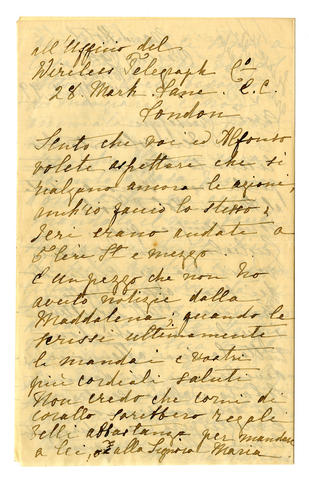 all'Uffizio del
Wireless Telegraph Co
28 Mark Lane. E. C.
London
Sento che voi ed Alfonso
volete aspettare che si
rialzano ancora le azioni,
anch'io faccio lo stesso;
Jeri erano andate a
5 lire St e mezzo.
E un pezzo che non ho
avuto notizie dalla
Maddalena; quando le
scrissi ultimamente
le mandai i vostri
più cordiali saluti
Non credo che corni di
corallo sarebbero regali
belli abbastanza per mandare
a lei, o alla Signora Maria